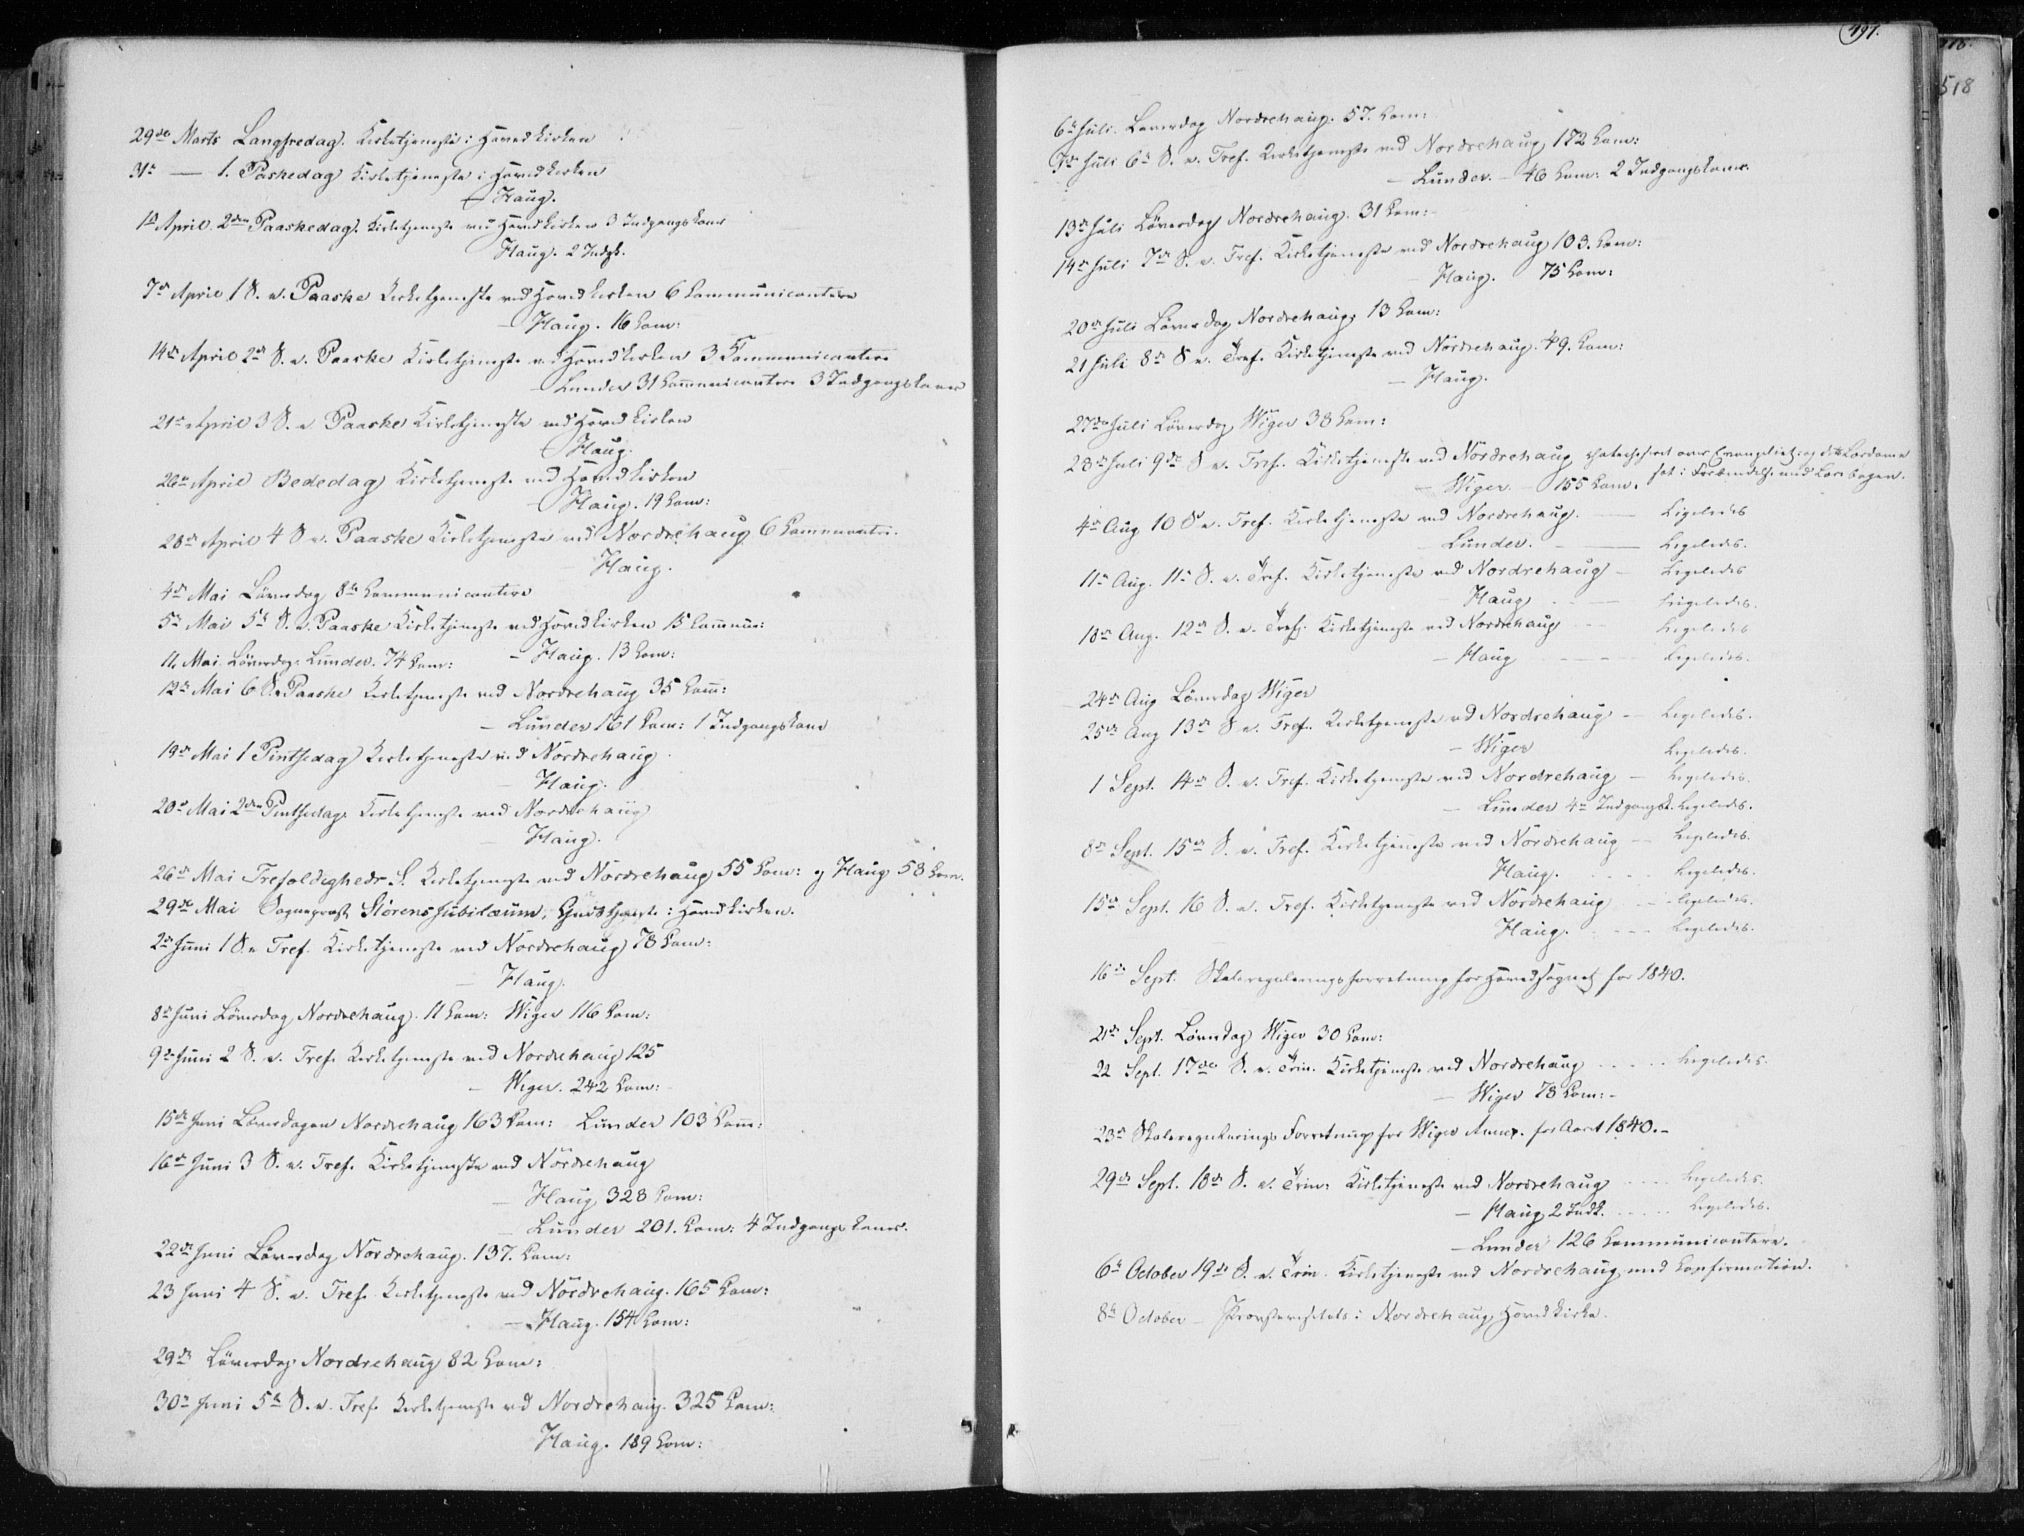 29de Marts Langfredag. Kirketjeneste i Hovedkirken
31te — 1. Paskedag Kirketjeneste i Hovedkirken
– Haug.
1st April. 2den Paaskedag. Kirketjeneste ved Hovedkirken 3 Indgangskoner
Haug. 2 Indgk.
7de April 1 S. e. Paaske Kirketjeneste ved Hovedkirken 6 Communicantere
– Haug. 16 Com:
14de April 2den S. e. Paaske Kirketjeneste ved Hovedkirken 3 Communicantere
– Lunder 31 Communicantere 3 Indgangskoner
21de April 3 S. e Paaske Kirketjeneste ved Hovedkirken
– Haug.
26de April Bededag Kirketjeneste ved Hovedkirken
– Haug. 19 Com:
28de April 4 S. e. Paaske Kirketjeneste ved Nordrehaug 6 Communicantere.
– Haug.
4de Mai Löverdag 8te Communicantere
5te Mai 5te S. e. Paaske Kirketjeneste ved Hovedkirken 15 Commun:
– Haug. 13 Com:
11. Mai. Löverdag. Lunder. 74 Com:
12te Mai 6 S. e Paaske Kirketjeneste ved Nordrehaug 35 Com:
– Lunder 161 Com: 1 Indgangskone
19de Mai 1 Pintsedag Kirketjeneste ved Nordrehaug
– Haug.
20de Mai 2den Pintsedag. Kirketjeneste ved Nordrehaug
– Haug.
26de Mai Trefoldigheds S. Kirketjeneste ved Nordrehaug 55 Com: og Haug 58 Com.
29de Mai Sogneprest Störens Jubilæum, Gudstjeneste i Hovedkirken.
2den Juni 1 S. e Tref. Kirketjeneste ved Nordrehaug 78 Com:
– Haug.
8de Juni Löverdag Nordrehaug. 11 Com: Wiger 116 Com:
9de Juni 2 S. e. Tref. Kirketjeneste ved Nordrehaug 125
– Wiger. 242 Com:
15de Juni Löverdagen Nordrehaug 163 Com: Lunder 103 Com:
16de Juni 3 S. e. Tref. Kirketjeneste ved Nordrehaug
– Haug 328 Com:
– Lunder 201. Com: 4 Indgangskoner.
22de Juni Löverdag Nordrehaug. 137. Com:
23 Juni 4 S. e. Tref. Kirketjeneste ved Nordrehaug. 165 Com:
– Haug. 154 Com:
29de Löverdag Nordrehaug 82 Com:
30te Juni 5te S. e. Tref. Kirketjeneste ved Nordrehaug. 325 Com:
Haug. 189 Com:
497.
518
6te Juli. Löverdag Nordrehaug. 57. Com:
7de Juli 6te S. e. Tref. Kirketjeneste ved Nordrehaug 172 Com:
– Lunder. – 46 Com: 2 Indgangskoner.
13de Juli Löverdag Nordrehaug. 31 Com:
14de Juli 7de S. e. Tref. Kirketjeneste ved Nordrehaug 103. Com:
– Haug. 75 Com:
20de Juli Löverdag Nordrehaug. 13 Com:
21 Juli 8de S e. Tref. Kirketjeneste ved Nordrehaug. 49. Com:
– Haug.
27de Juli Löverdag Wiger 38 Com:
28de Juli 9de S e. Tref. Kirketjeneste ved Nordrehaug, chatechiseret over Evangeliet og dets Lærdomme
– Wiger. – 155 Com. sat i Forbindelse med Lærebogen.
4de Aug 10 S e. Tref. Kirketjeneste ved Nordrehaug. — Ligeledes
– Lunder. — Ligeledes.
11te Aug. 11te S. e. Tref. Kirketjeneste ved Nordrehaug – Ligeledes
– Haug — Ligeledes.
18de Aug. 12te S. e. Tref. Kirketjeneste ved Nordrehaug – Ligeledes
– Haug – – – Ligeledes.
24de Aug Löverdag Wiger
25de Aug 13de S e. Tref. Kirketjeneste ved Nordrehaug – Ligeledes.
– Wiger Ligeledes.
1 Sept. 14de S. e. Tref. Kirketjeneste ved Nordrehaug – Ligeledes.
– Lunder 4re Indgangsk. Ligeledes.
8de Sept. 15de S. e. Tref. Kirketjeneste ved Nordrehaug – Ligeledes.
Haug. Ligeledes.
15de Sept. 16 S. e. Tref. Kirketjeneste ved Nordrehaug Ligeledes.
Haug. Ligeledes.
16de Sept. Skolereguleringsforretning for Hovedsognet for 1840.
21de Sept. Löverdag Wiger 30 Com:
22 Sept. 17de S. e. Trin. Kirketjeneste ved Nordrehaug Ligeledes.
– Wiger 78 Com: –
23de Skolereguleringsforretning for Wiger Annex. for Aaret 1840. –
29de Sept. 18de S. e. Trin: Kirketjeneste ved Nordrehaug Ligeledes.
– Haug 2 Indk. Ligeledes.
– Lunder 126 Communicantere.
6te October 19de S. e. Trin. Kirketjeneste ved Nordrehaug med Confirmation.
8de October – Provstevisitats i Nordrehaug Hovedkirke.